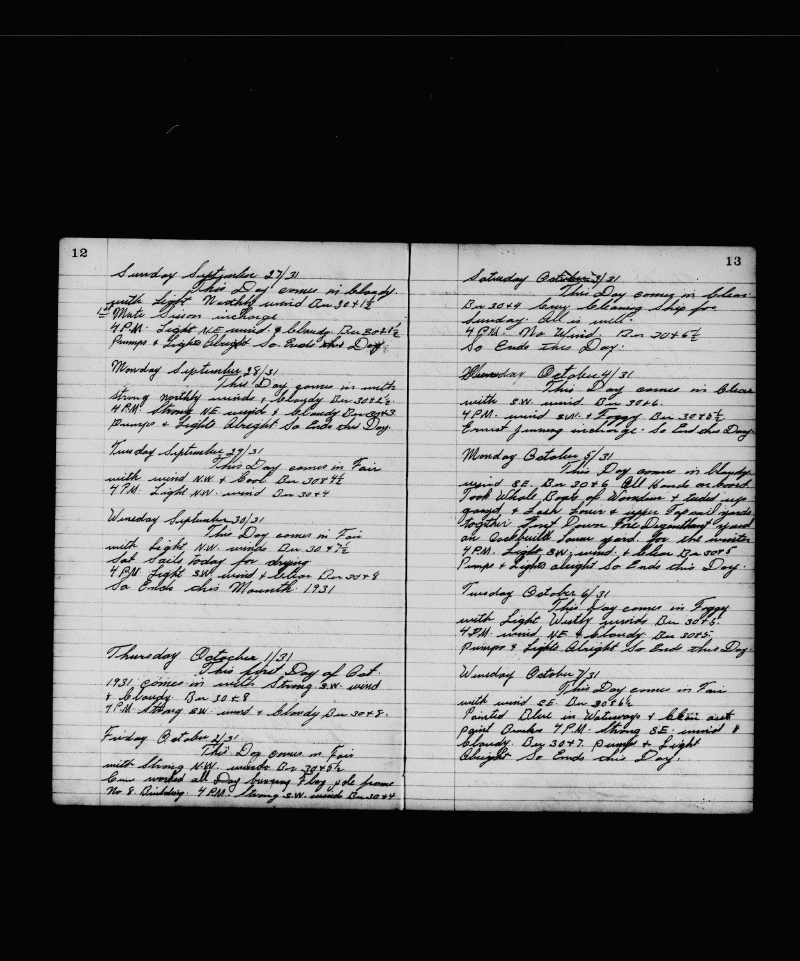 12
Sunday September 27/31
This Day comes in Cloudy.
with Light Northly wind Bar 30+1½
1st Mate Sison incharge
4 P.M. Light NE wind. & Cloudy. Bar 30+2½
Pumps & Lights Alright So Ends this Day.
Monday September 28/31
This Day comes in with
strong northly winds & Cloudy Bar 30+2½.
4 P.M. Strong NE wind & Cloudy Bar 30+3.
Pumps & Lights Alright So Ends this Day
Tuesday September 29/31
This Day comes in Fair
with wind N.W. & Cool Bar 30+4½
4 P.M. Light N.W. wind Bar 30+4
Wensday September 30/31
This Day comes in Fair
with Light N.W. winds Bar 30+7½
Sat Sails today for drying
4 P.M. Light S.W. wind & Clear Bar 30+8
So Ends this Mounth. 1931
Thursday Octocber 1/31
This first Day of Oct.
1931 comes in with Strong S.W. wind
& Cloudy. Bar 30+8
4 P.M. Strong S.W. wind & Cloudy Bar 30+8.
Friday October 2/31
This Day comes in Fair
with Strong N.W. winds Bar 30+5½
Crew worked all Day Flag pole from
No 8 Building. 4 P.M. Strong S.W. winds Bar 30+4
13
Saturday October 3/31
This Day comes in Clear
Bar 30+4 Crew Cleaning ship for
Sunday. All is well
4 P.M. No Wind. Bar 30+6½
So Ends this Day.
October 4/31
This Day comes in Clear
with S.W. wind Bar 30+6.
4 P.M. wind S.W. & Foggy Bar 30+5½
Ernest incharge. So End this Day.
Monday October 5/31
This Day comes in Cloudy
wind S.E. Bar 30+6 All Hands on board
Took Whole Boats of & up
& Lash Lower & upper Topsail yards
together Sent Down Fore yard
on Cockbuilt Lower yard for the winter
4 P.M. Light S.W. wind & Clear Bar 30+5
Pumps & Lights alright So Ends this Day.
Tuesday October 6/31
This Day comes in Foggy
with Light Westly winds Bar 30+5.
4 P.M. wind NE & Cloudy Bar 30+5.
Pumps & Lights Alright So Ends this Day.
Wensday October 7/31
This Day comes in Fair
with wind S.E. Bar 30+6½
Painted Blue in Waterways & Clean out
paint 4 P.M. Strong S.E. wind &
Cloudy. Bar 30+7. Pumps & Light
Alright So Ends this Day.